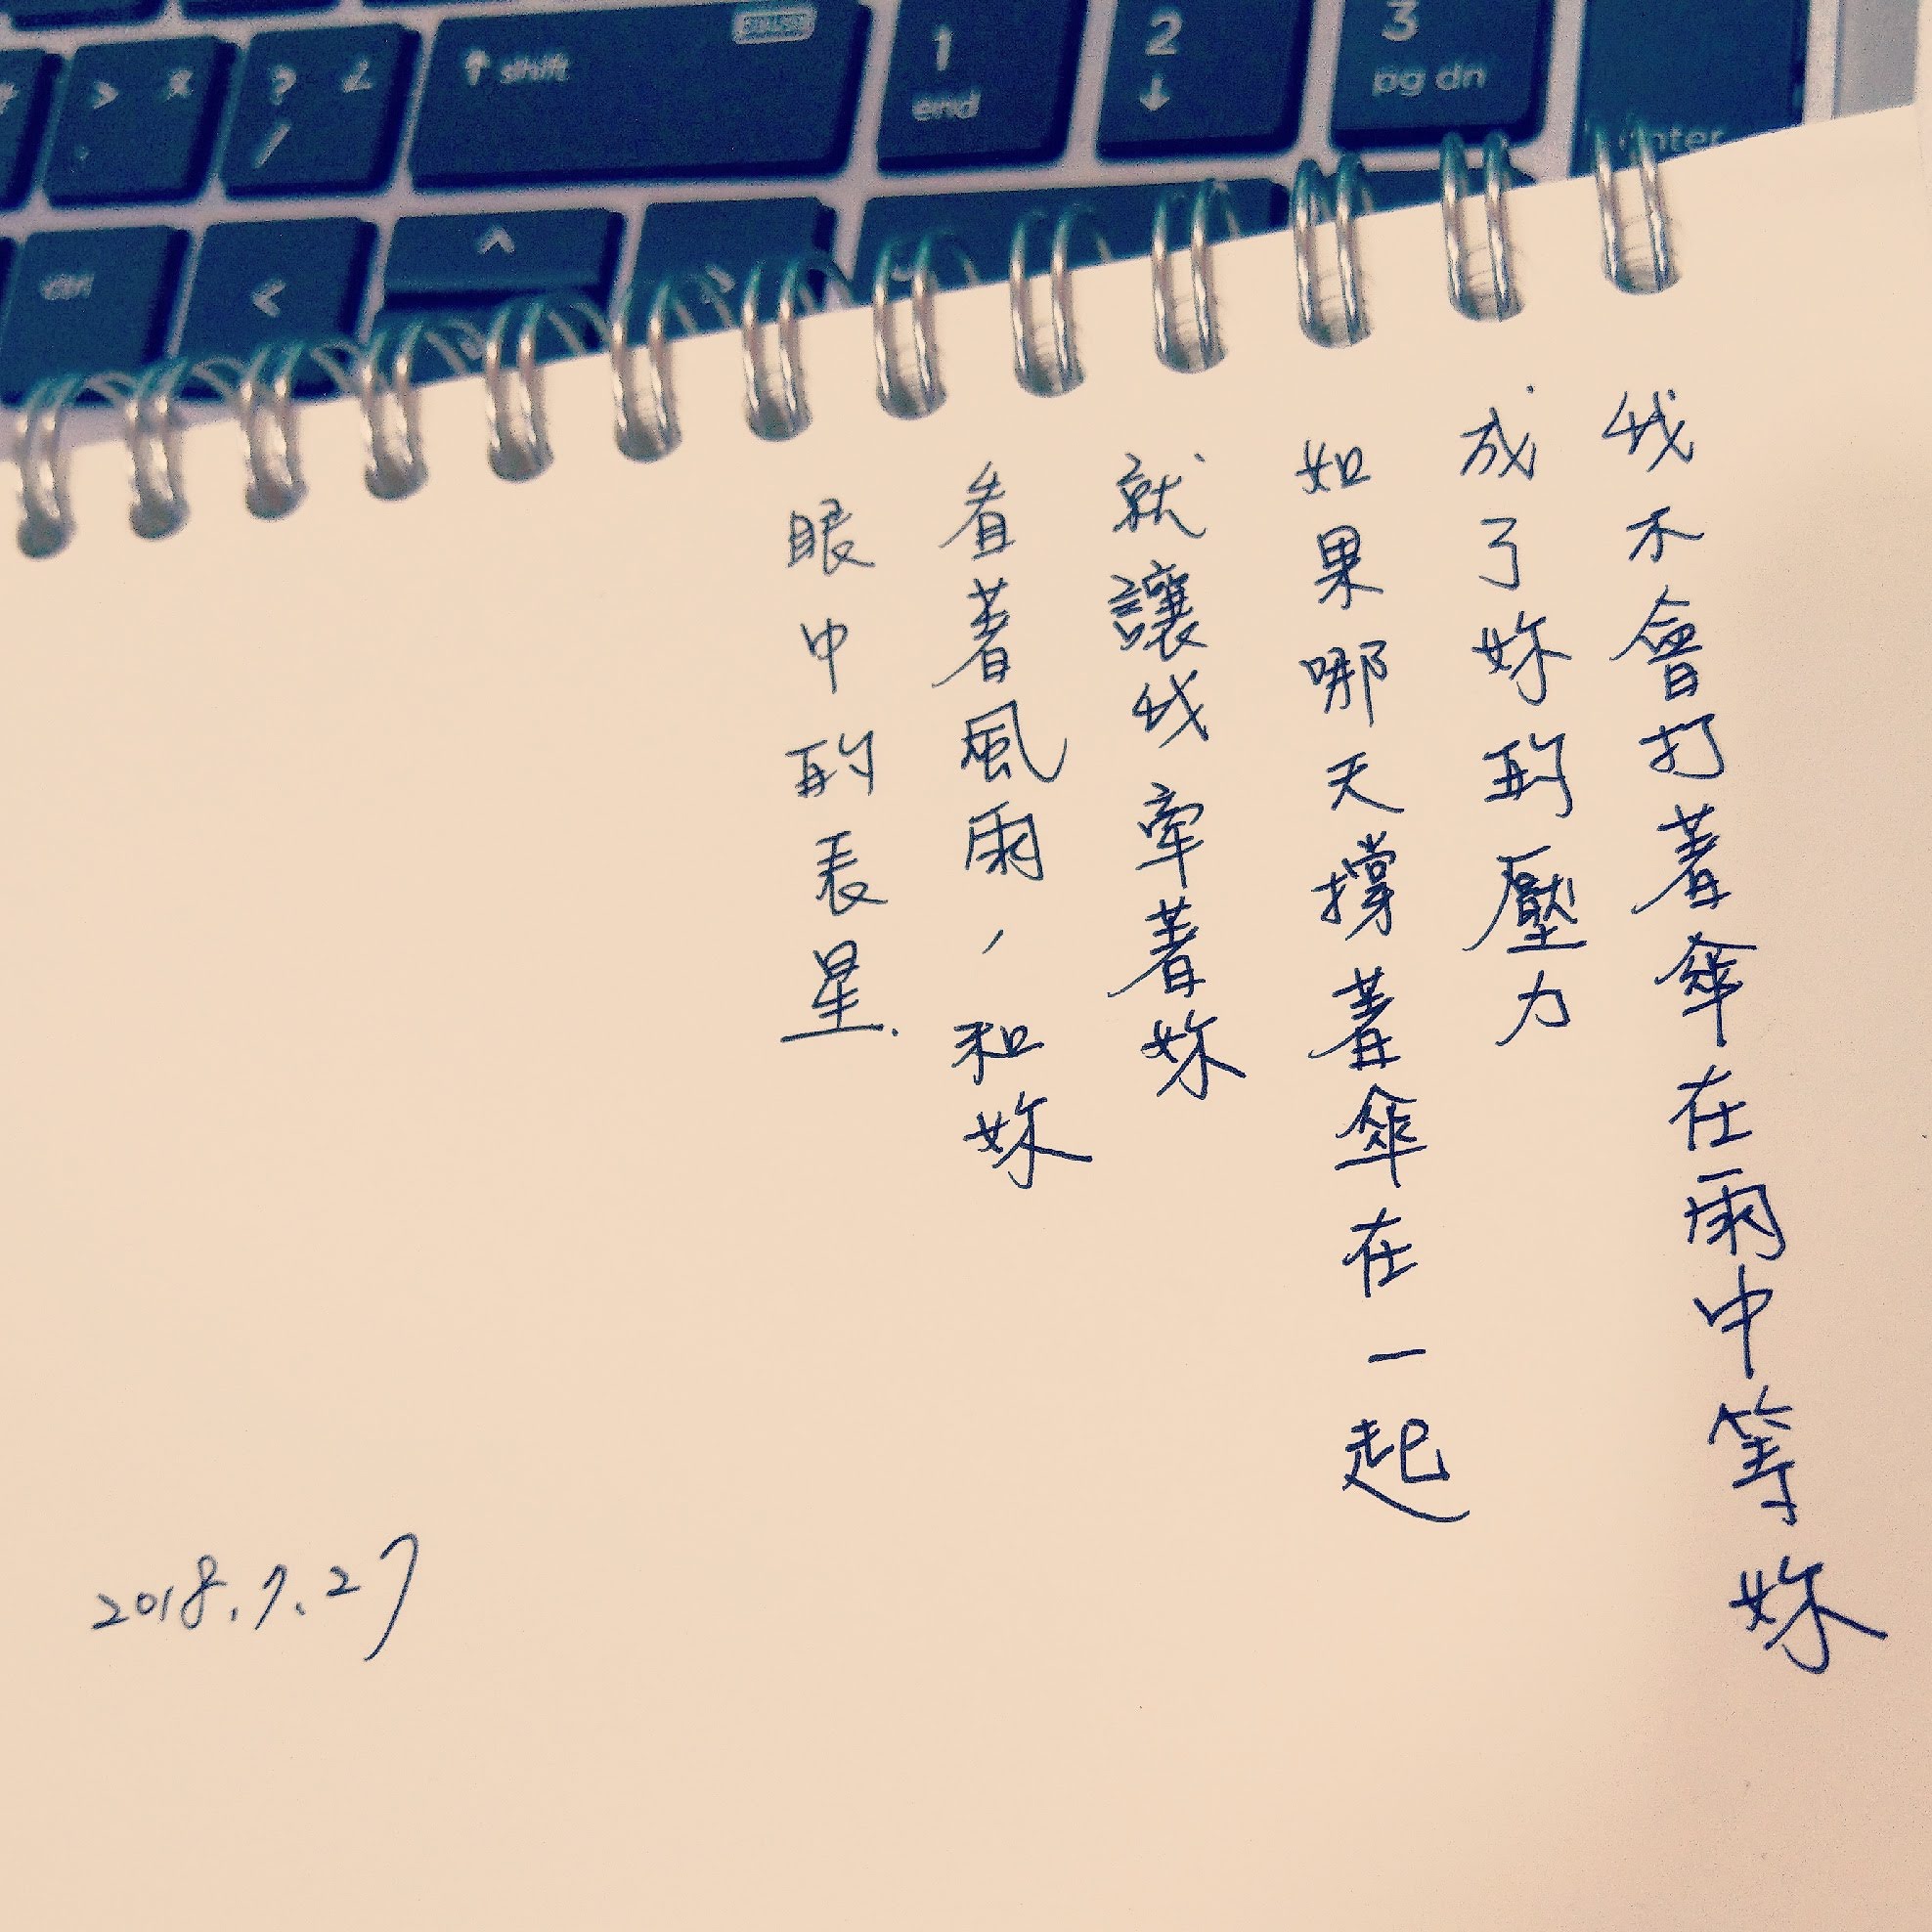 > x
? ∠
/
↑ shift
1
end
2
↓
3
pg dn
enter
ctrl
<
^
我不會打著傘在雨中等妳
成了妳的壓力
如果哪天撐著傘在一起
就讓我牽著妳
看著風雨,和妳
眼中的星.
2018.7.27